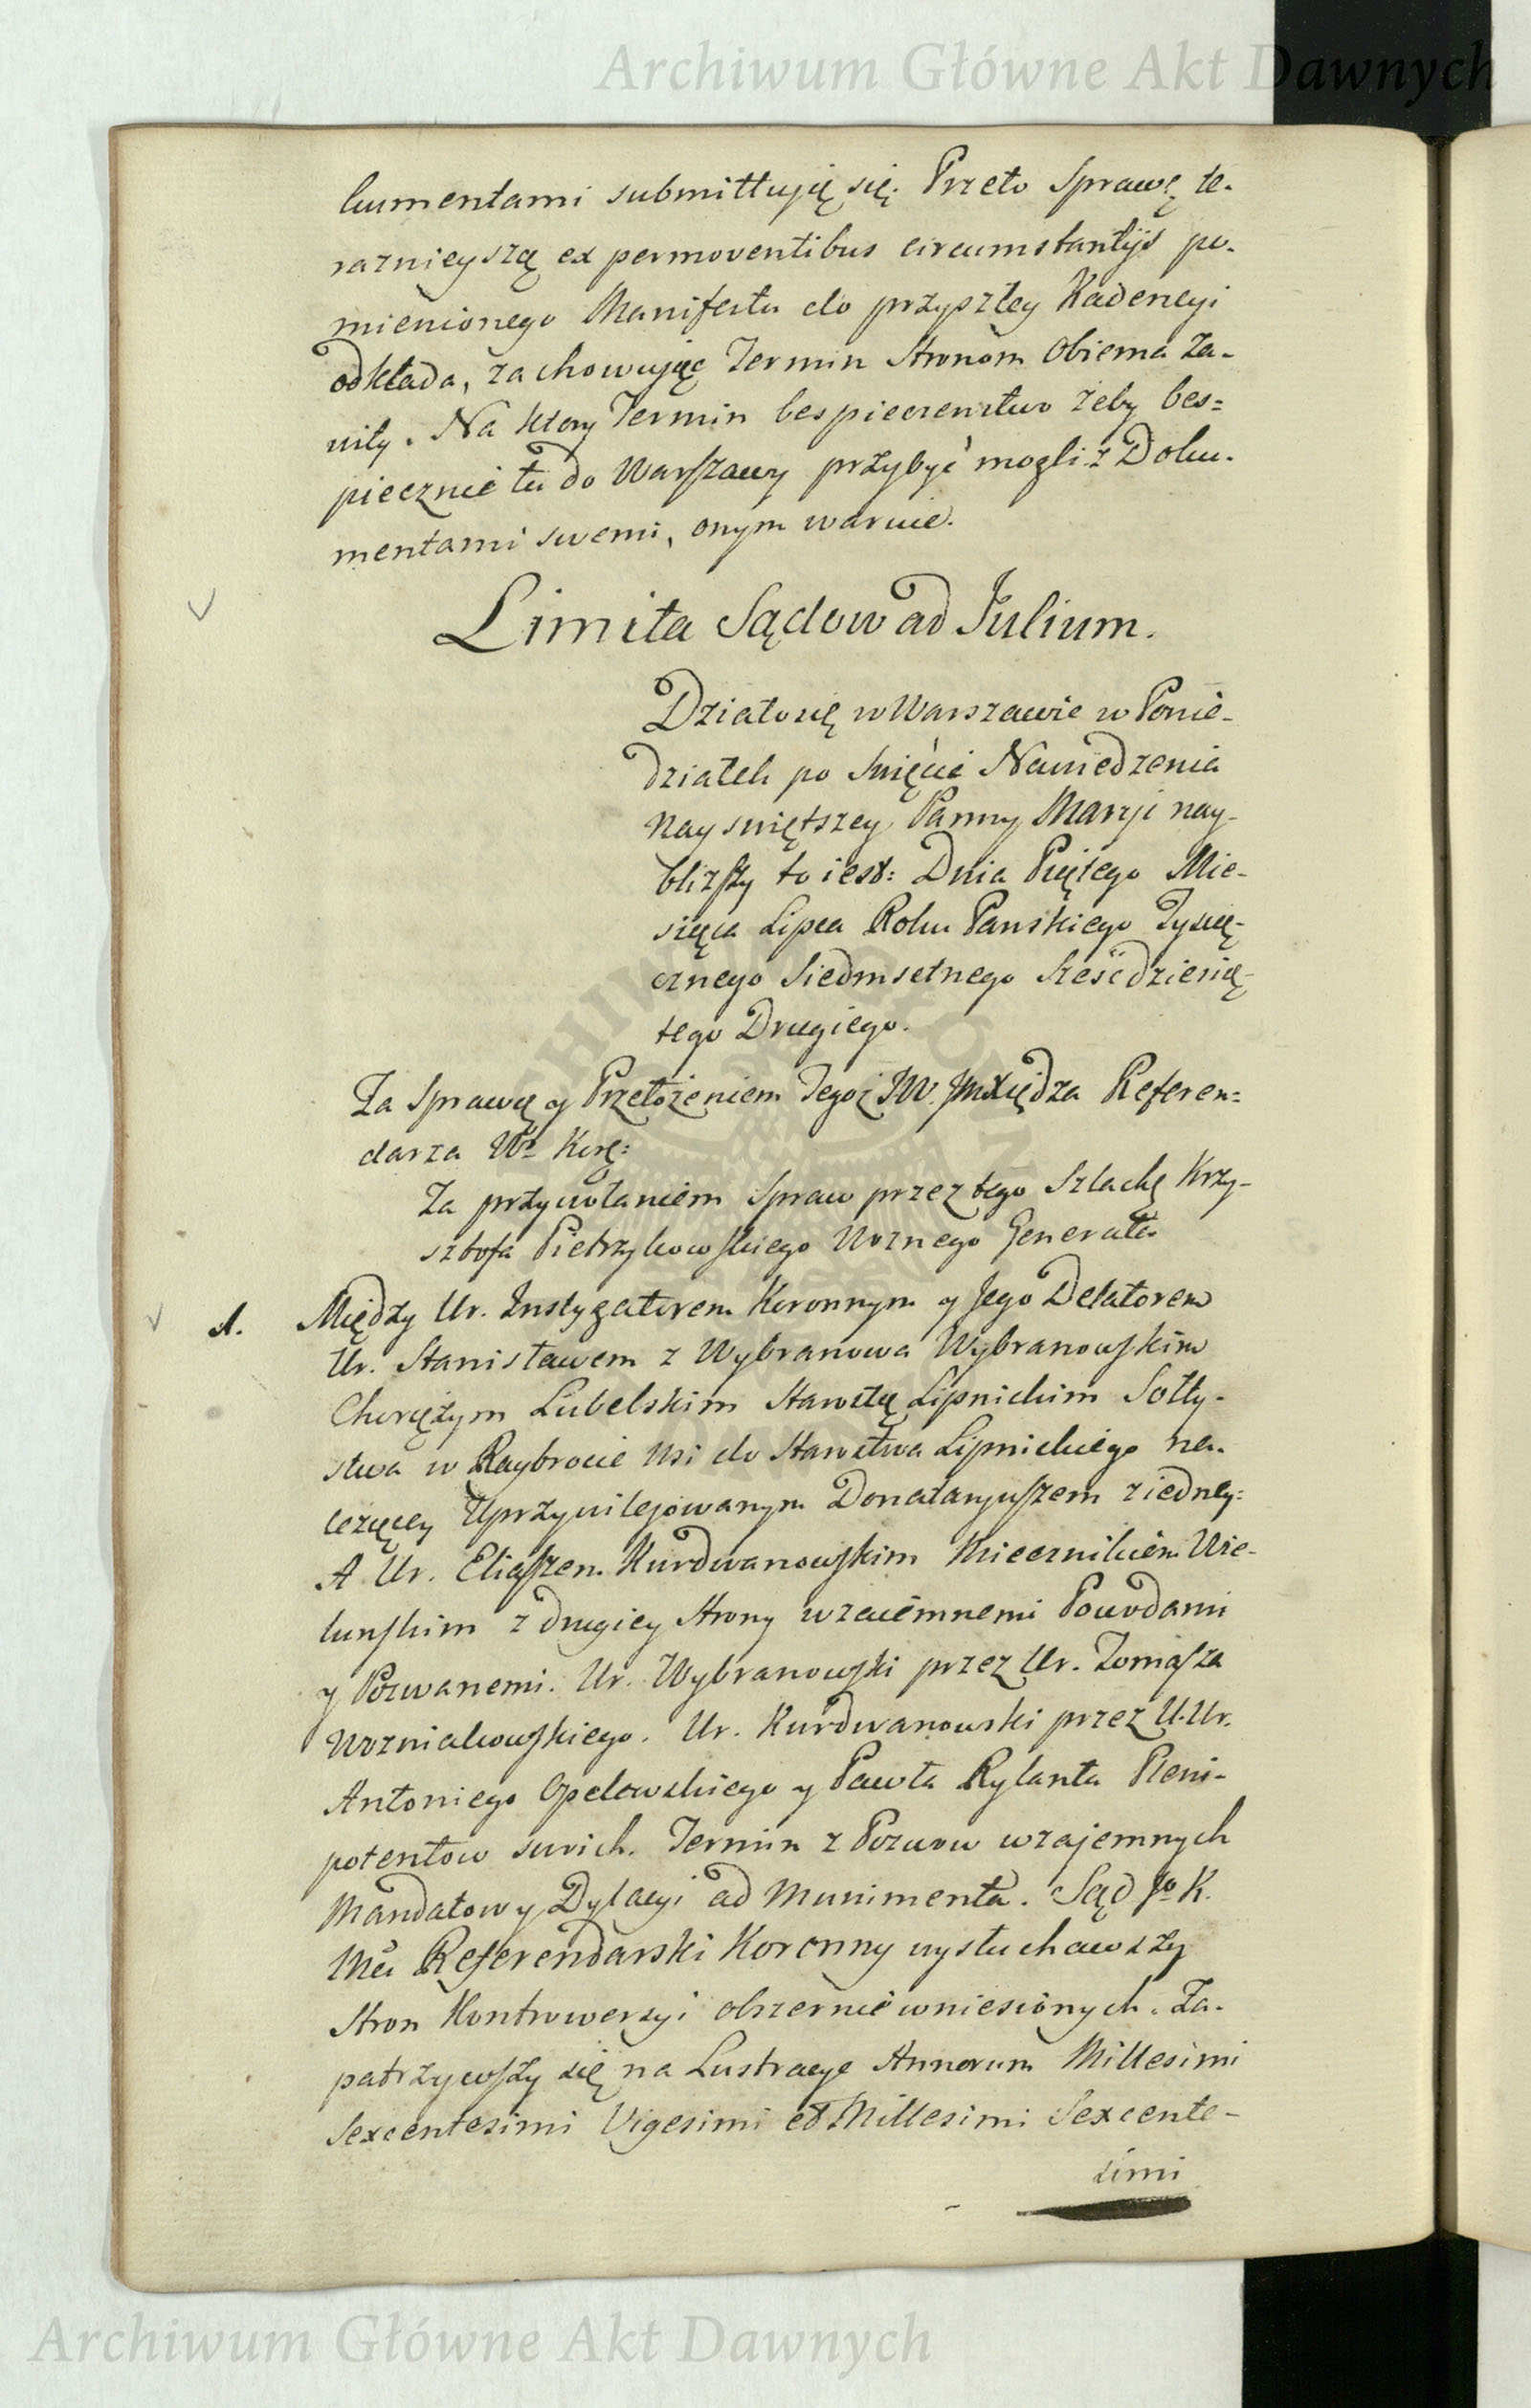 Archiwum Główne Akt Dawnych
kumentami submittują się. Przeto Sprawę te-
raznieyszą ex permoventibus circumstantijs po-
mienionego Manifestu do przyszłey Kadencyi
odkłada, zachowując Termin Stronom Obiema Za-
wity. Na ktory Termin bespieczenstwo żeby bes=
piecznie tu do Warszawy przybyć mogli z Doku-
mentami swemi, onym waruie.
Limita Sądow ad Julium.
Działo się w Warszawie w Ponie-
działek po Swięcie Nawiedzenia
Nayswiętszey Panny Maryi nay-
bliższy to iest: Dnia Piętego Mie-
siąca Lipca Roku Panskiego Tysią-
cznego Siedmsetnego Sześćdziesią-
tego Drugiego.
Za Sprawą y Przełożeniem Tegoż JW. JmXiędza Referen=
darza Wo Kor:
Za przywołaniem Spraw przez tego Szlachę Krzy-
sztofa Pietrzykowskiego Woznego Generała
A. Między Ur. Instygatorem Koronnym y Jego Delatorem
Ur. Stanisławem z Wybranowa Wybranowskim
Chorążym Lubelskim Starostą Lipnickim Sołty-
stwa w Raybrocie Wsi do Starostwa Lipnickiego na-
leżącey Uprzywilejowanym Donataryuszem z iedney:
A Ur. Eliaszem Kurdwanowskim Miecznikiem Wie-
lunskim z drugiey Strony wzaiemnemi Powodami
y Pozwanemi. Ur. Wybranowski przez Ur. Tomasza
Wozniakowskiego. Ur. Kurdwanowski przez U. Ur.
Antoniego Opelewskiego y Pawła Rylanta Pleni-
potentow swich. Termin z Pozwow wzajemnych
Mandatow y Dylacyi ad Munimenta. Sąd Jo K.
Mci Referendarski Koronny wysłuchawszy
Stron Kontrowersyi obszernie wniesionych. Za-
patrzywszy się na Lustracye Annorum Millesimi
Sexcentesimi Vigesimi et Millesimi Sexcente-
simi
Archiwum Główne Akt Dawnych